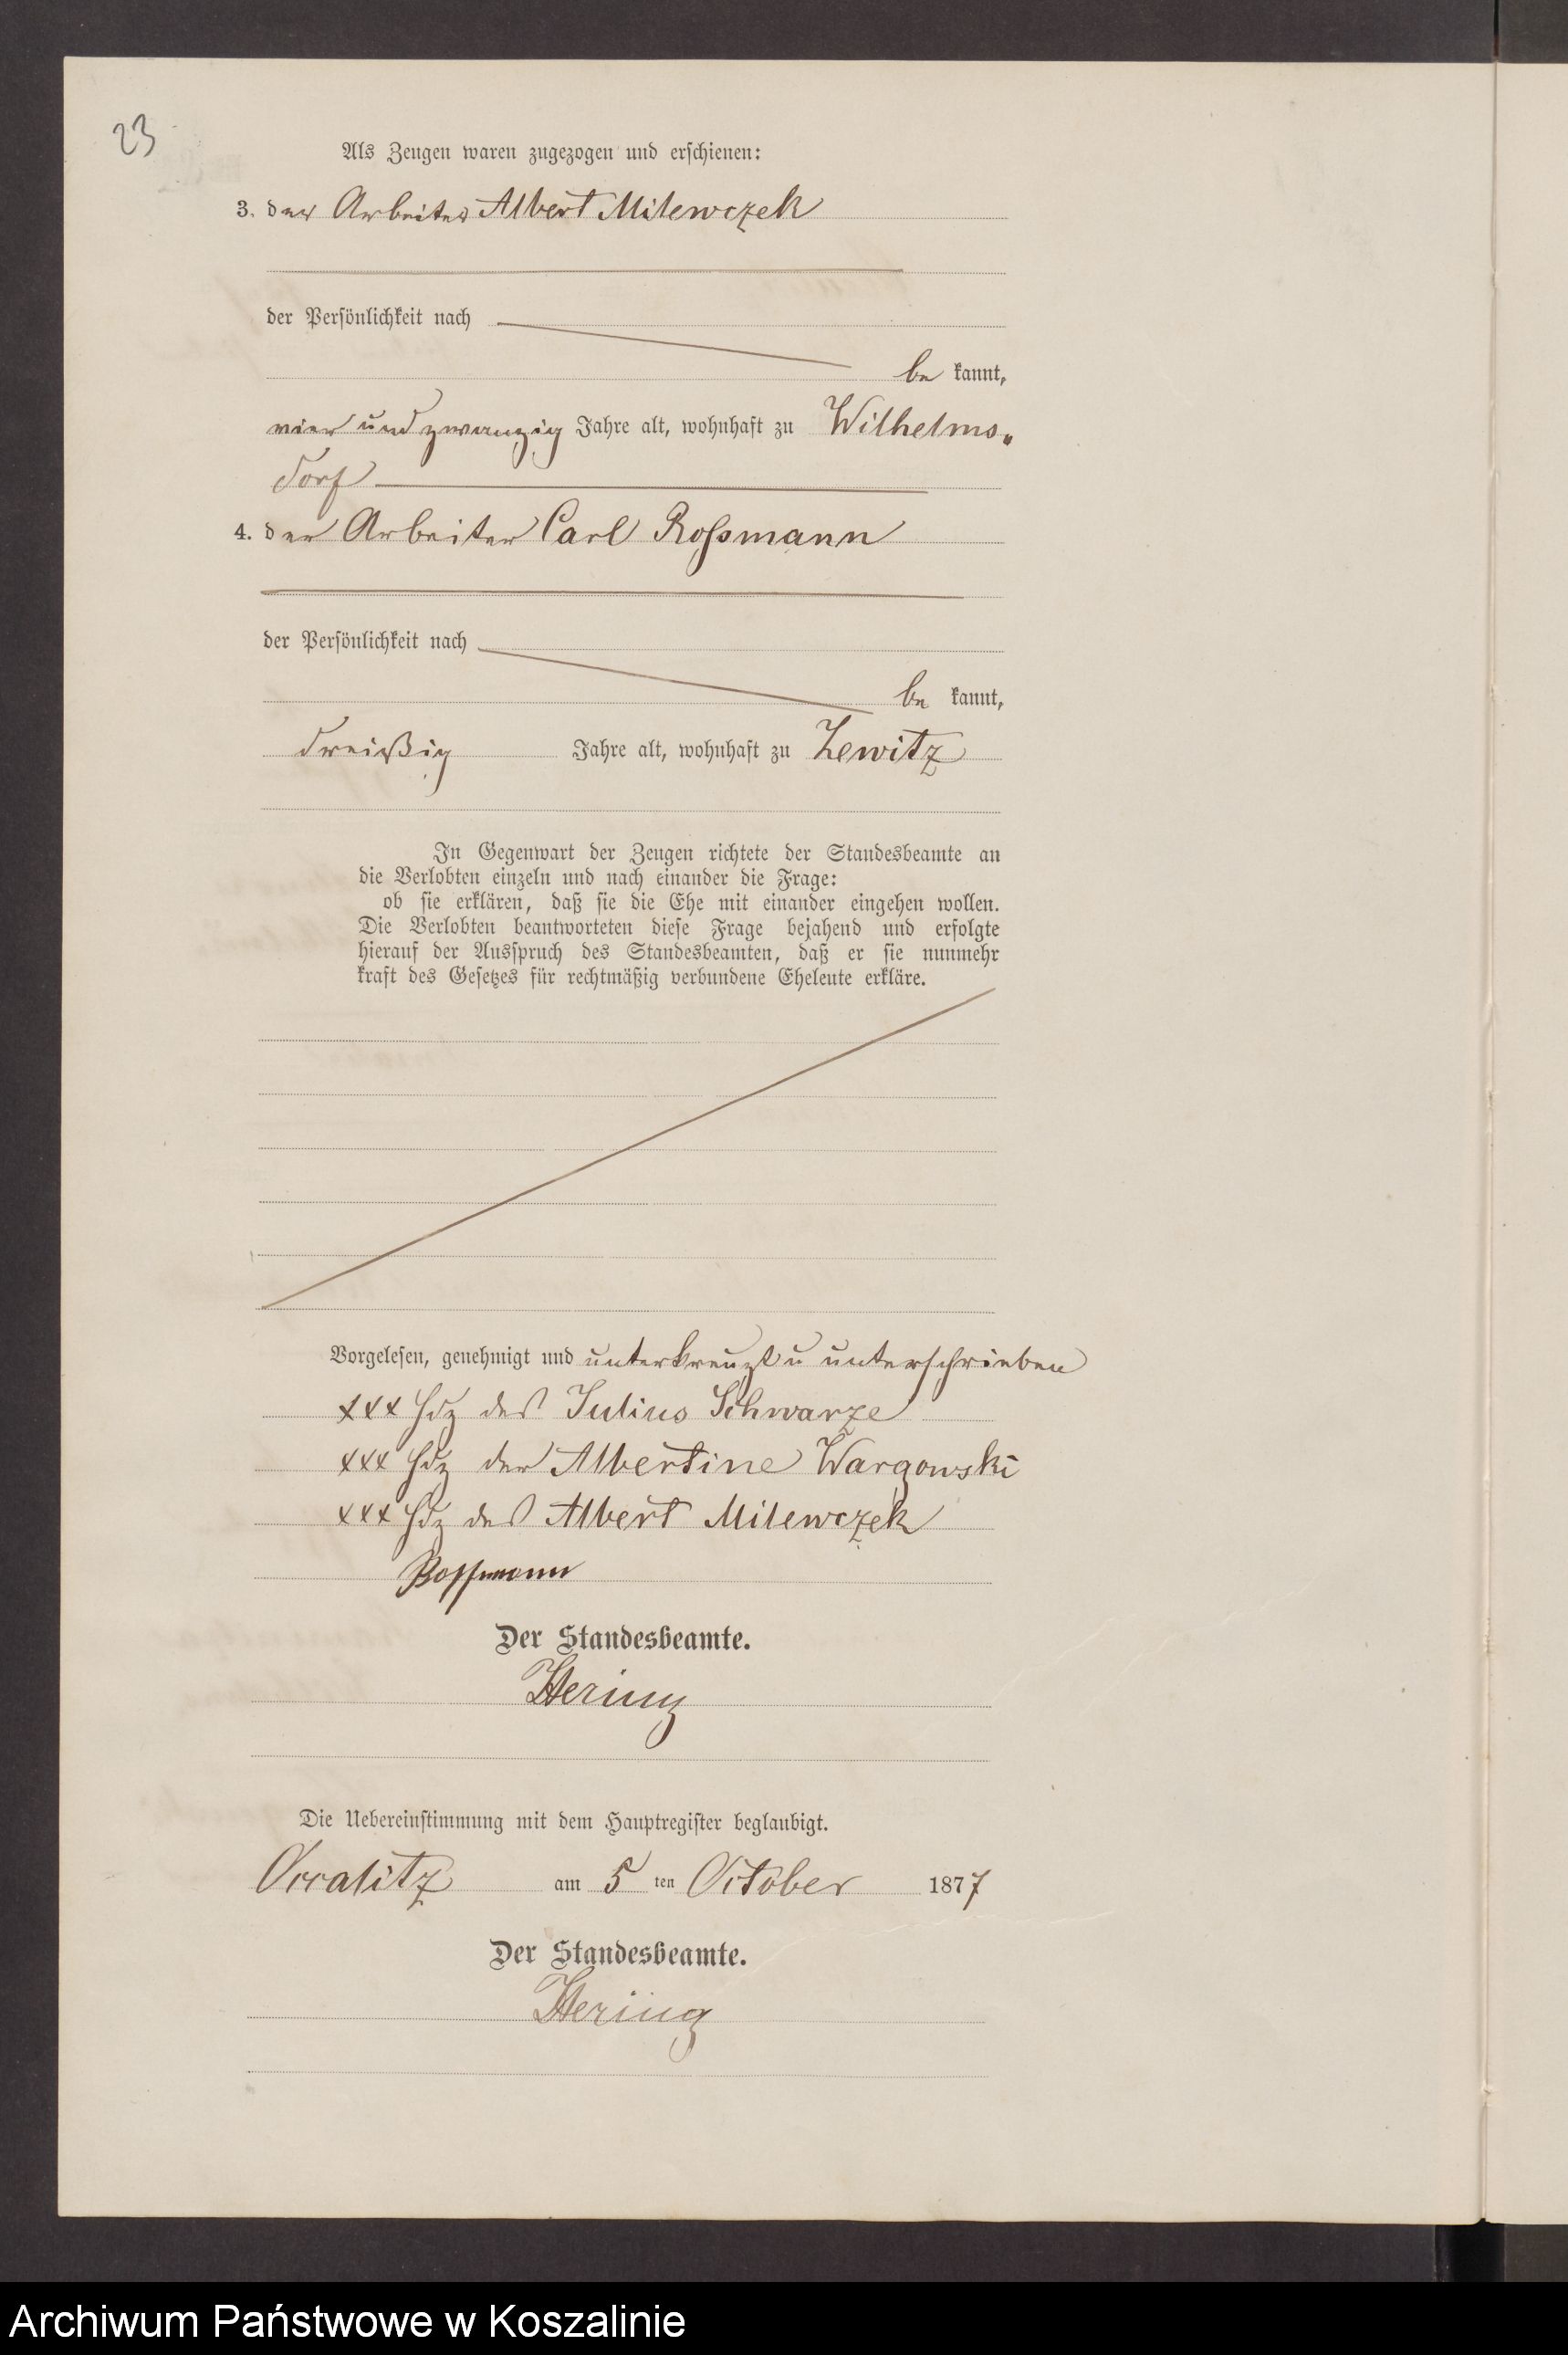 23
Als Zeugen waren zugezogen und erschienen:
3. der Arbeiter Albert Milewczek
der Persönlichkeit nach
be kannt,
vier und zwanzig Jahre alt, wohnhaft zu Wilhelms-
dorf
4. der Arbeiter Carl Roßmann
der Persönlichkeit nach
be kannt,
dreißig Jahre alt, wohnhaft zu Zewitz
In Gegenwart der Zeugen richtete der Standesbeamte an
die Verlobten einzeln und nach einander die Frage:
ob sie erklären, daß sie die Ehe mit einander eingehen wollen.
Die Verlobten beantworteten diese Frage bejahend und erfolgte
hierauf der Ausspruch des Standesbeamten, daß er sie nunmehr
kraft des Gesetzes für rechtmäßig verbundene Eheleute erkläre.
Vorgelesen, genehmigt und unterkreuzt u unterschrieben
xxx Hdz des Julius Schwarze
xxx Hdz der Albertine Wargowski
xxx Hdz des Albert Milewczek
Rossmann
Der Standesbeamte.
Hering
Die Uebereinstimmung mit dem Hauptregister beglaubigt.
Occalitz am 5 ten October 1877
Der Standesbeamte.
Hering
Archiwum Państwowe w Koszalinie